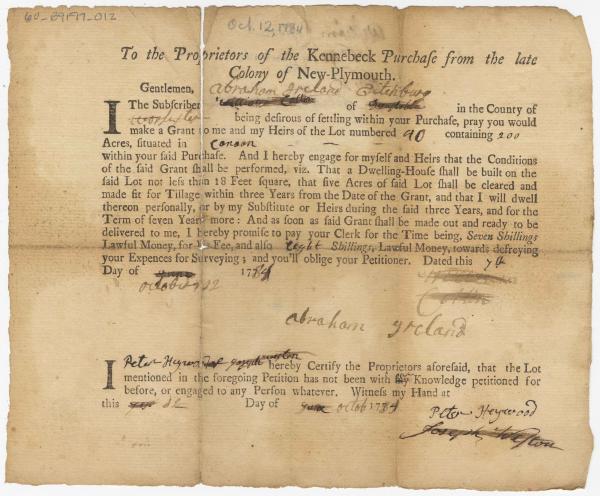 60-B9F99-012
Oct. 12, 1784
To the Proprietors of the Kennebeck Purchaſe from the late
Colony of New-Plymouth.
Gentlemen, abraham Ireland Fitchburg
I The Subſcriber of in the County of
being deſirous of settling within your Purchaſe, pray you would
make a Grant to me and my Heirs of the Lot numbered 90 containing 200
Acres, situated in Canaan
within your said Purchaſe. And I hereby engage for myself and Heirs that the Conditions
of the said Grant shall be performed, viz. That a Dwelling-Houſe shall be built on the
said Lot not leſs than 18 Feet square, that five Acres of said Lot shall be cleared and
made fit for Tillage within three Years from the Date of the Grant, and that I will dwell
thereon personally, or by my Subſtitute or Heirs during the said three Years, and for the
Term of seven Years more: And as soon as said Grant shall be made out and ready to be
delivered to me, I hereby promise to pay your Clerk for the Time being, Seven Shillings
Lawful Money, for his Fee, and also Eight Shillings, Lawful Money, towards defreying
your Expences for Surveying; and you'll oblige your Petitioner. Dated this
Day of 17
october
Colbn
abraham Ireland
I Peter Heywood hereby Certify the Proprietors aforesaid, that the Lot
mentioned in the foregoing Petition has not been with my Knowledge petitioned for
before, or engaged to any Perſon whatever. Witneſs my Hand at
this Day of octob 1784
Peter Heywood
Joseph Weston